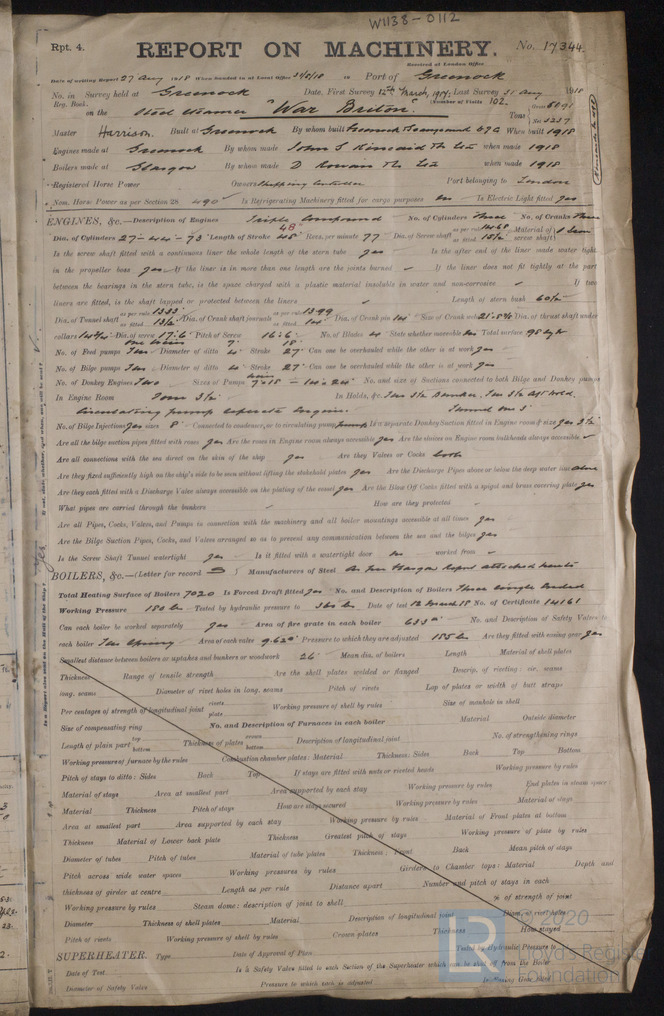 W1138-0112
Rpt. 4.
REPORT ON MACHINERY.
No. 17344.
Received at London Office
Date of writing Report 27 Aug 1918 When handed in at Local Office 31/8/18 Port of Greenock
No. in Survey held at Greenock Date, First Survey 12th March, 1917, Last Survey 31 Aug 1918
Reg. Book. (Number of Visits 102.
on the Steel Steamer "War Briton". Tons
Master Harrison Built at Greenock By whom built Greenock When built 1918
Engines made at Greenock By whom made John G Kincaid & Co Ltd when made 1918
Boilers made at Glasgow By whom made D Rowan & Co Ltd when made 1918
Registered Horse Power Owners Shipping Controller Port belonging to London
Nom. Horse Power as per Section 28 490 Is Refrigerating Machinery fitted for cargo purposes no Is Electric Light fitted yes
ENGINES, &c.—Description of Engines Triple Compound No. of Cylinders Three No. of Cranks Three
Dia. of Cylinders 27-44-73 Length of Stroke 48 Revs. per minute 77 Dia. of Screw shaft as per rule 14.68 as fitted 15 1/2 Material of screw shaft
Is the screw shaft fitted with a continuous liner the whole length of the stern tube yes Is the after end of the liner made water tight
in the propeller boss yes If the liner is in more than one length are the joints burned If the liner does not fit tightly at the part
between the bearings in the stern tube, is the space charged with a plastic material insoluble in water and non-corrosive If two
liners are fitted, is the shaft lapped or protected between the liners Length of stern bush 60 1/2
Dia. of Tunnel shaft as per rule 13.33 as fitted 13 1/2 Dia. of Crank shaft journals as per rule 13.99 as fitted 14 Dia. of Crank pin 14 Size of Crank web Dia. of thrust shaft under
collars 14 3/4 Dia. of screw 17.6 Pitch of Screw 16.6 No. of Blades 4 State whether moveable no Total surface 98 sq ft
No. of Feed pumps Two Diameter of ditto 4 Stroke 27 Can one be overhauled while the other is at work yes
No. of Bilge pumps Two Diameter of ditto 4 Stroke 27 Can one be overhauled while the other is at work yes
No. of Donkey Engines Two Sizes of Pumps No. and size of Suctions connected to both Bilge and Donkey pumps
In Engine Room Four 3 1/2 In Holds, &c. Two 3 1/2
circulating pump separate engine. Tunnel one 3
No. of Bilge Injections yes sizes 8 Connected to condenser, or to circulating pump pump Is a separate Donkey Suction fitted in Engine room & size yes 3 1/2
Are all the bilge suction pipes fitted with roses yes Are the roses in Engine room always accessible yes Are the sluices on Engine room bulkheads always accessible
Are all connections with the sea direct on the skin of the ship yes Are they Valves or Cocks both
Are they fixed sufficiently high on the ship's side to be seen without lifting the stokehold plates yes Are the Discharge Pipes above or below the deep water line above
Are they each fitted with a Discharge Valve always accessible on the plating of the vessel yes Are the Blow Off Cocks fitted with a spigot and brass covering plate yes
What pipes are carried through the bunkers How are they protected
Are all Pipes, Cocks, Valves, and Pumps in connection with the machinery and all boiler mountings accessible at all times yes
Are the Bilge Suction Pipes, Cocks, and Valves arranged so as to prevent any communication between the sea and the bilges yes
Is the Screw Shaft Tunnel watertight yes Is it fitted with a watertight door no worked from
BOILERS, &c.—(Letter for record S) Manufacturers of Steel As per Glasgow Report attached hereto
Total Heating Surface of Boilers 7020 Is Forced Draft fitted yes No. and Description of Boilers Three single ended
Working Pressure 180 lbs Tested by hydraulic pressure to 360 lbs Date of test 12 March 18 No. of Certificate 14161
Can each boiler be worked separately yes Area of fire grate in each boiler No. and Description of Safety Valves to
each boiler Two Spring Area of each valve 9.62 Pressure to which they are adjusted 185 lbs Are they fitted with easing gear yes
Smallest distance between boilers or uptakes and bunkers or woodwork 26 Mean dia. of boilers Length Material of shell plates
Thickness Range of tensile strength Are the shell plates welded or flanged Descrip. of riveting: cir. seams
long. seams Diameter of rivet holes in long. seams Pitch of rivets Lap of plates or width of butt straps
Per centages of strength of longitudinal joint rivets plates Working pressure of shell by rules Size of manhole in shell
Size of compensating ring No. and Description of Furnaces in each boiler Material Outside diameter
Length of plain part top bottom Thickness of plates crown bottom Description of longitudinal joint No. of strengthening rings
Working pressure of furnace by the rules Combustion chamber plates: Material Thickness: Sides Back Top Bottom
Pitch of stays to ditto: Sides Back Top If stays are fitted with nuts or riveted heads Working pressure by rules
Material of stays Area at smallest part Area supported by each stay Working pressure by rules End plates in steam space:
Material Thickness Pitch of stays How are stays secured Working pressure by rules Material of stays
Area at smallest part Area supported by each stay Working pressure by rules Material of Front plates at bottom
Thickness Material of Lower back plate Thickness Greatest pitch of stays Working pressure of plate by rules
Diameter of tubes Pitch of tubes Material of tube plates Thickness: Front Back Mean pitch of stays
Pitch across wide water spaces Working pressures by rules Girders to Chamber tops: Material Depth and
thickness of girder at centre Length as per rule Distance apart Number and pitch of stays in each
Working pressure by rules Steam dome: description of joint to shell % of strength of joint
Diameter Thickness of shell plates Material Description of longitudinal joint Diam. of rivet holes
Pitch of rivets Working pressure of shell by rules Crown plates Thickness How stayed
SUPERHEATER. Type Date of Approval of Plan Tested by Hydraulic Pressure to
Date of Test Is a Safety Valve fitted to each Section of the Superheater which can be shut off from the Boiler
Diameter of Safety Valve Pressure to which each is adjusted Is Easing Gear fitted
© 2020
Lloyd's Register
Foundation